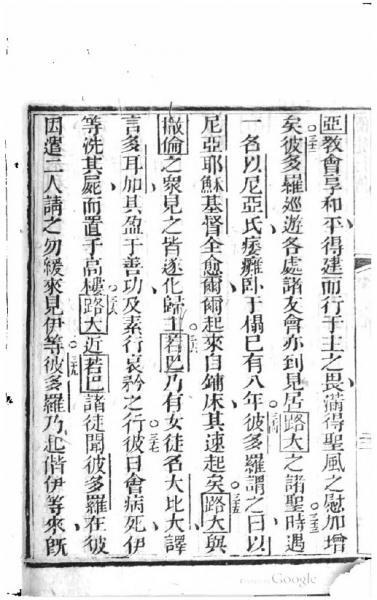 亞教會享和平得建而行于主之畏滿得聖風之慰加增
矣三二彼多羅巡遊各處諸友會亦到見居路大之諸聖三三時遇
一名以尼亞氏瘓癱臥于榻已有八年三四彼多羅謂之曰以
尼亞耶穌基督全愈爾爾起來自鋪床其速起矣三五路大與
撒偷之衆見之皆遂化歸主三六若巴乃有女徒名大比大譯
言多耳加其盈于善功及素行哀矜之行三七彼日會病死伊
等洗其屍而置于高樓三八路大近若巴諸徒聞彼多羅在彼
因遣二人請之勿緩來見伊等三九彼多羅乃起偕伊等來旣
Google